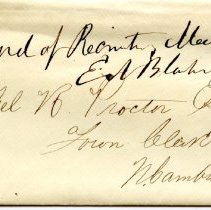 ord of Recruits, Mea
E. A. Blake
el R. Proctor
Town Clerk
N. Camb